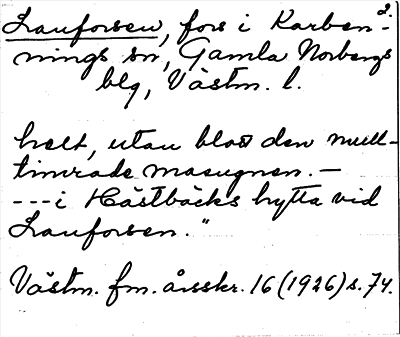 2.
Lanforsen, fors i Karben-
nings sn, Gamla Norbergs
blg, Västm. l.
helt, utan blott den mull-
timrade masugnen. —
--- i Hästbäcks hytta vid
Lanforsen."
Västm. fm. årsskr. 16 (1926) s. 74.